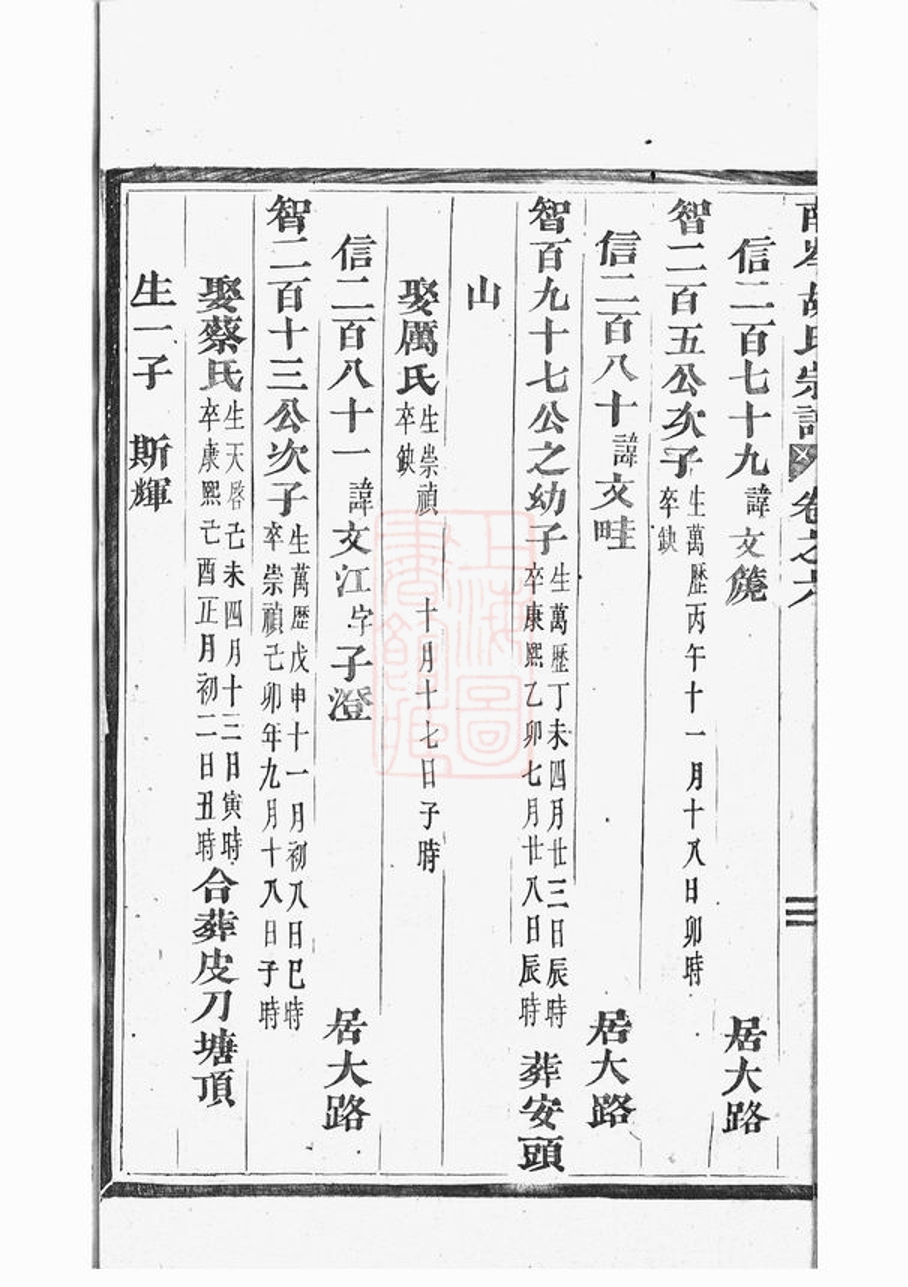 南岑胡氏宗譜 卷之六 三
信二百七十九 諱文篪 居大路
智二百五公次子 生萬歷丙午十一月十八日卯時 卒缺
信二百八十 諱文畦 居大路
智百九十七公之幼子 生萬歷丁未四月廿三日辰時 卒康熙乙卯七月廿八日辰時 葬安頭
山
娶厲氏 生崇禎 十月十七日子時 卒缺
信二百八十一 諱文江字子澄 居大路
智二百十三公次子 生萬歷戊申十一月初八日巳時 卒崇禎己卯年九月十八日子時
娶蔡氏 生天啓己未四月十三日寅時 卒康熙己酉正月初二日丑時 合葬皮刀塘頂
生一子 斯輝
上海圖書館藏